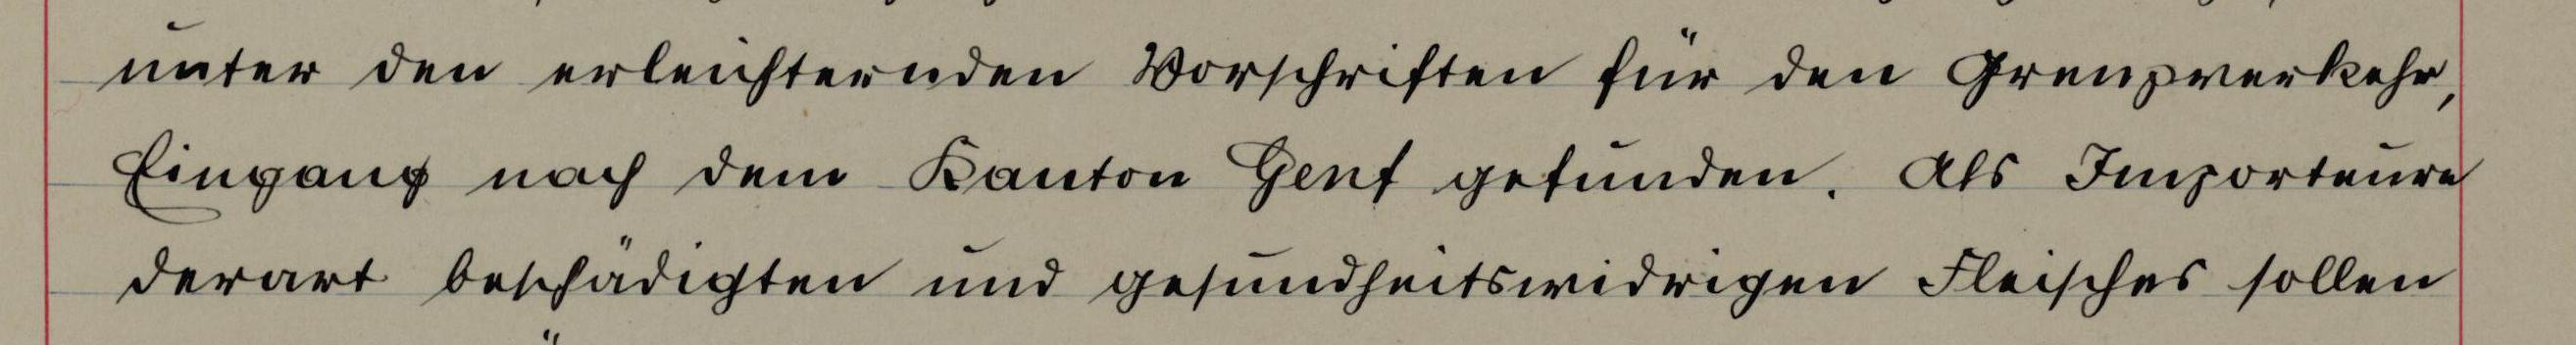 unter den erleichternden Vorschriften für den Grenzverkehr,
Eingang nach dem Kanton Genf gefunden. Als Importeure
derart beschädigten und gesundheitswidrigen Fleisches sollen